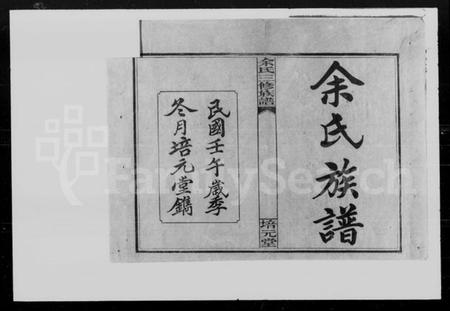 余氏族譜
余氏三修族譜
培元堂
民國壬午歲季
冬月培元堂鐫
FamilySearch